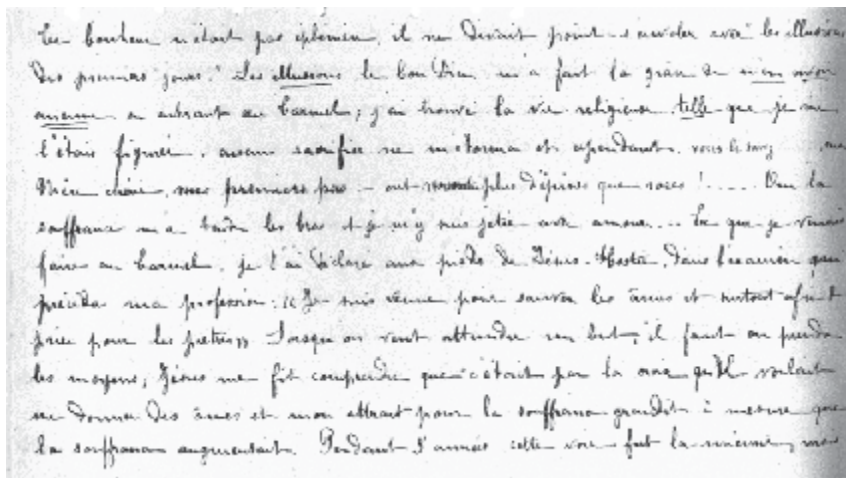 Ce bonheur n'était pas éphémère, il ne devait point s'envoler avec les illusions
des premiers jours. Les illusions, le bon Dieu m'a fait la grâce de n'en avoir
aucune en entrant au Carmel; j'ai trouvé la vie religieuse telle que je me
l'étais figurée, aucun sacrifice ne m'étonna et cependant, vous le savez, ma
Mère chérie, mes premiers pas ont rencontré plus d'épines que de roses!..... Oui la
souffrance m'a tendu les bras et je m'y suis jetée avec amour... Ce que je venais
faire au Carmel, je l'ai déclaré aux pieds de Jésus-Hostie, dans l'examen qui
précéda ma profession: «Je suis venue pour sauver les âmes et surtout afin de
prier pour les prêtres» Lorsqu'on veut atteindre un but, il faut en prendre
les moyens; Jésus me fit comprendre que c'était par la croix qu'Il voulait
me donner des âmes et mon attrait pour la souffrance grandit à mesure que
la souffrance augmentait. Pendant 5 années cette voie fut la mienne; mais